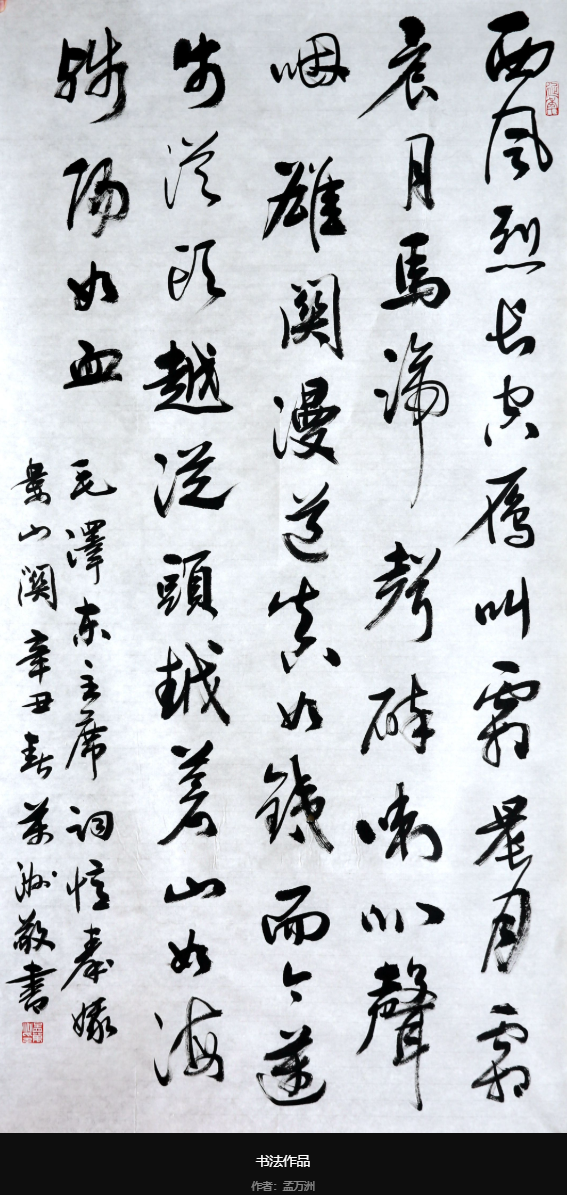 西风烈长空雁叫霜晨月霜
晨月馬蹄聲碎喇叭聲
咽雄関漫道真如鐵而今邁
步從头越從頭越蒼山如海
殘陽如血
毛澤东主席词憶秦娥
娄山関辛丑春萬洲敬書
书法作品
作者：孟万洲